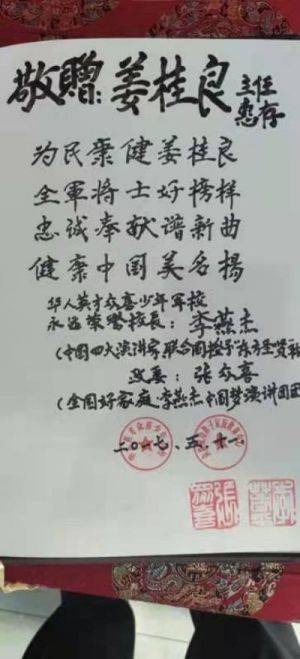 敬赠:姜桂良
主任
惠存
为民康健姜桂良
全軍将士好榜样
忠诚奉献谱新曲
健康中国美名揚
华人英才众喜少年軍校
永远荣誉校長:李燕杰
(中国四大演讲家联合国授予"东方圣贤
政委:张众喜
(全国好家庭·李燕杰中国梦演讲团团
二〇一七、五、十一